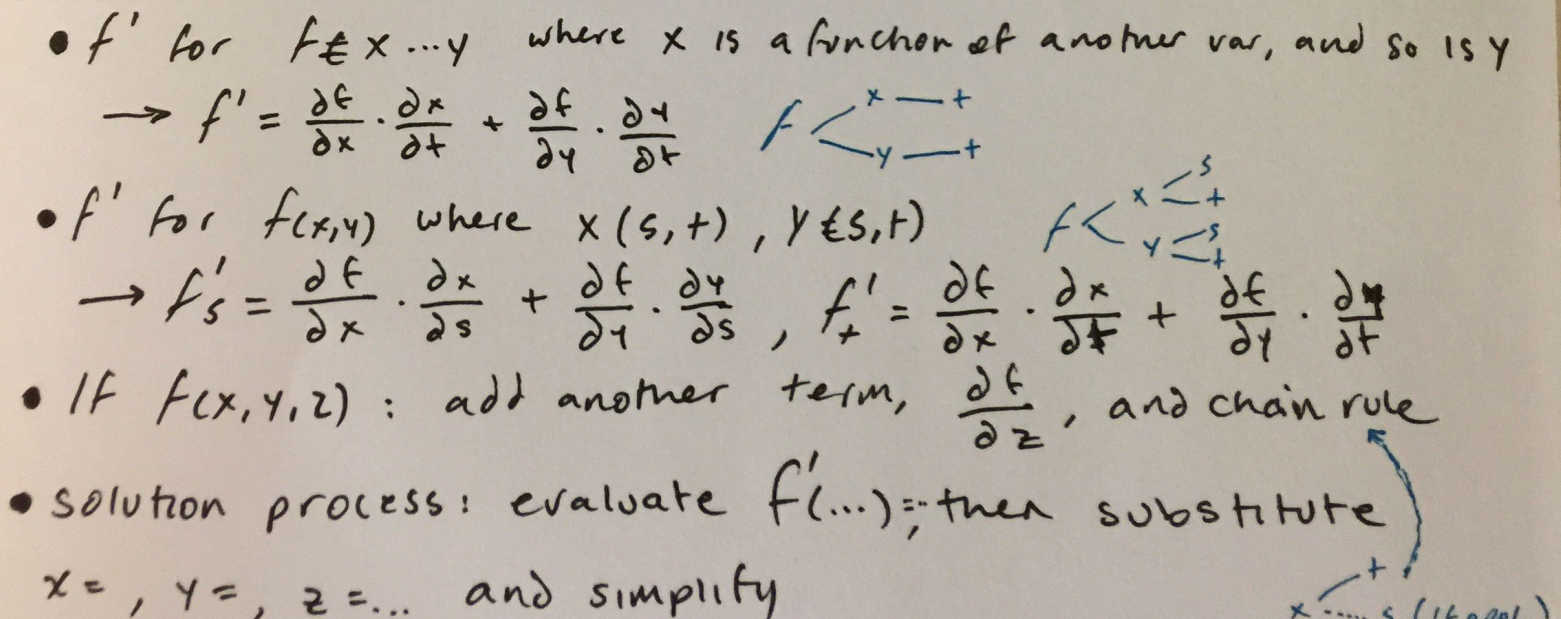 • f' for f∈ x ... y where x is a function of another var, and so is y
→ f' = ∂f/∂x · ∂x/∂t + ∂f/∂y · ∂y/∂t f x — t y — t
• f' for f(x,y) where x(s,t), y(s,t) f x s t y s t
→ f's = ∂f/∂x · ∂x/∂s + ∂f/∂y · ∂y/∂s, f't = ∂f/∂x · ∂x/∂t + ∂f/∂y · ∂y/∂t
• If f(x,y,z): add another term, ∂f/∂z, and chain rule
• solution process: evaluate f'(...), then substitute
x= , y= , z=... and simplify
x t s (if